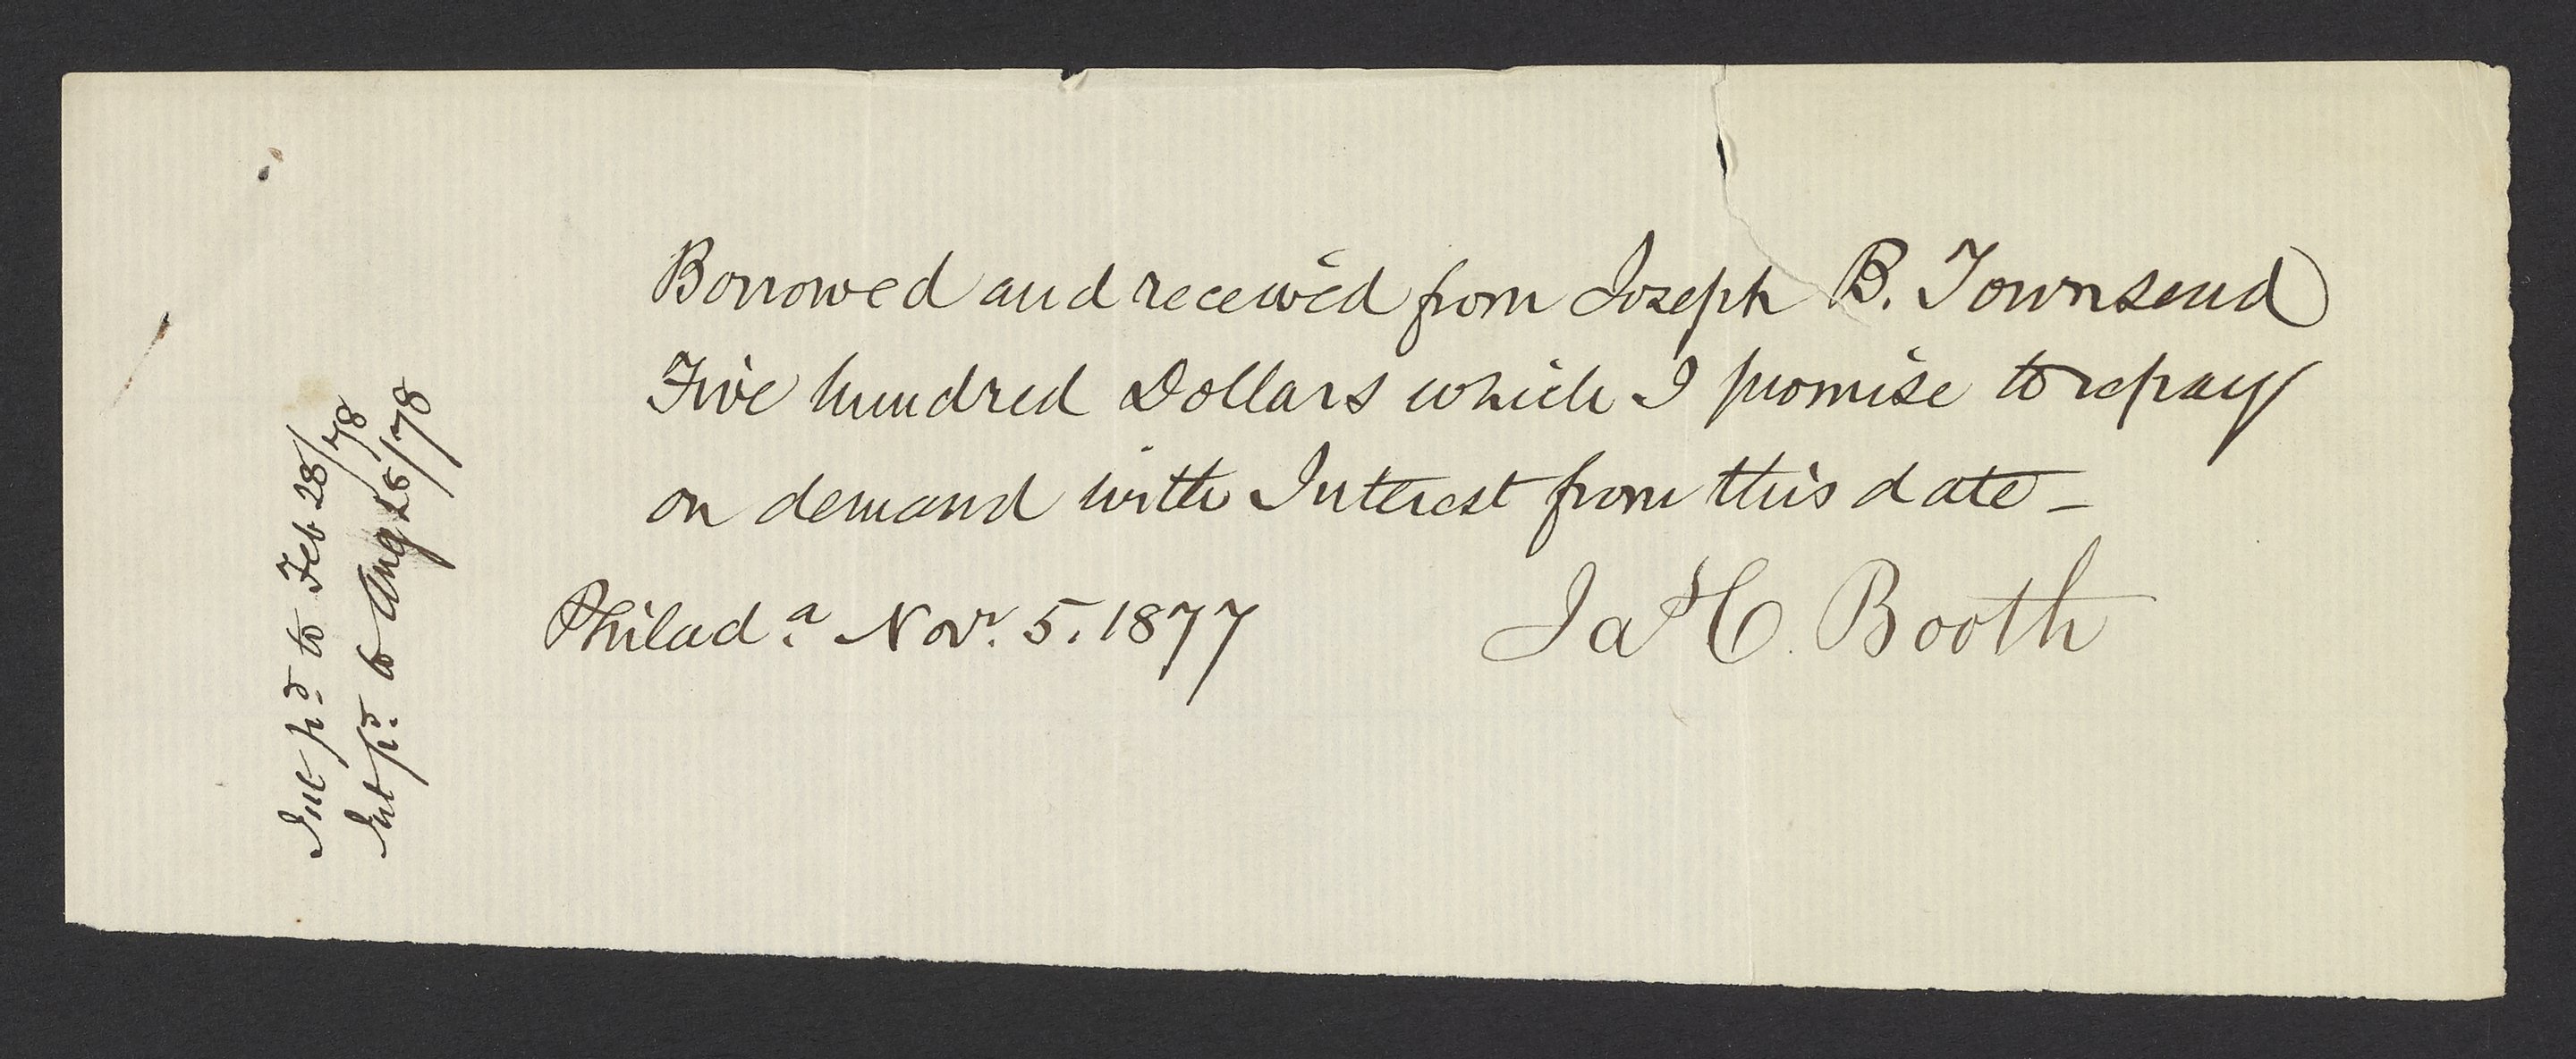 Borrowed and received from Joseph B. Townsend
Five hundred Dollars which I promise to repay
on demand with Interest from this date –
Philad.a Novr. 5. 1877
Ja H C. Booth
Int pd. to Feb 28/78
Int pd. to Aug 28/78